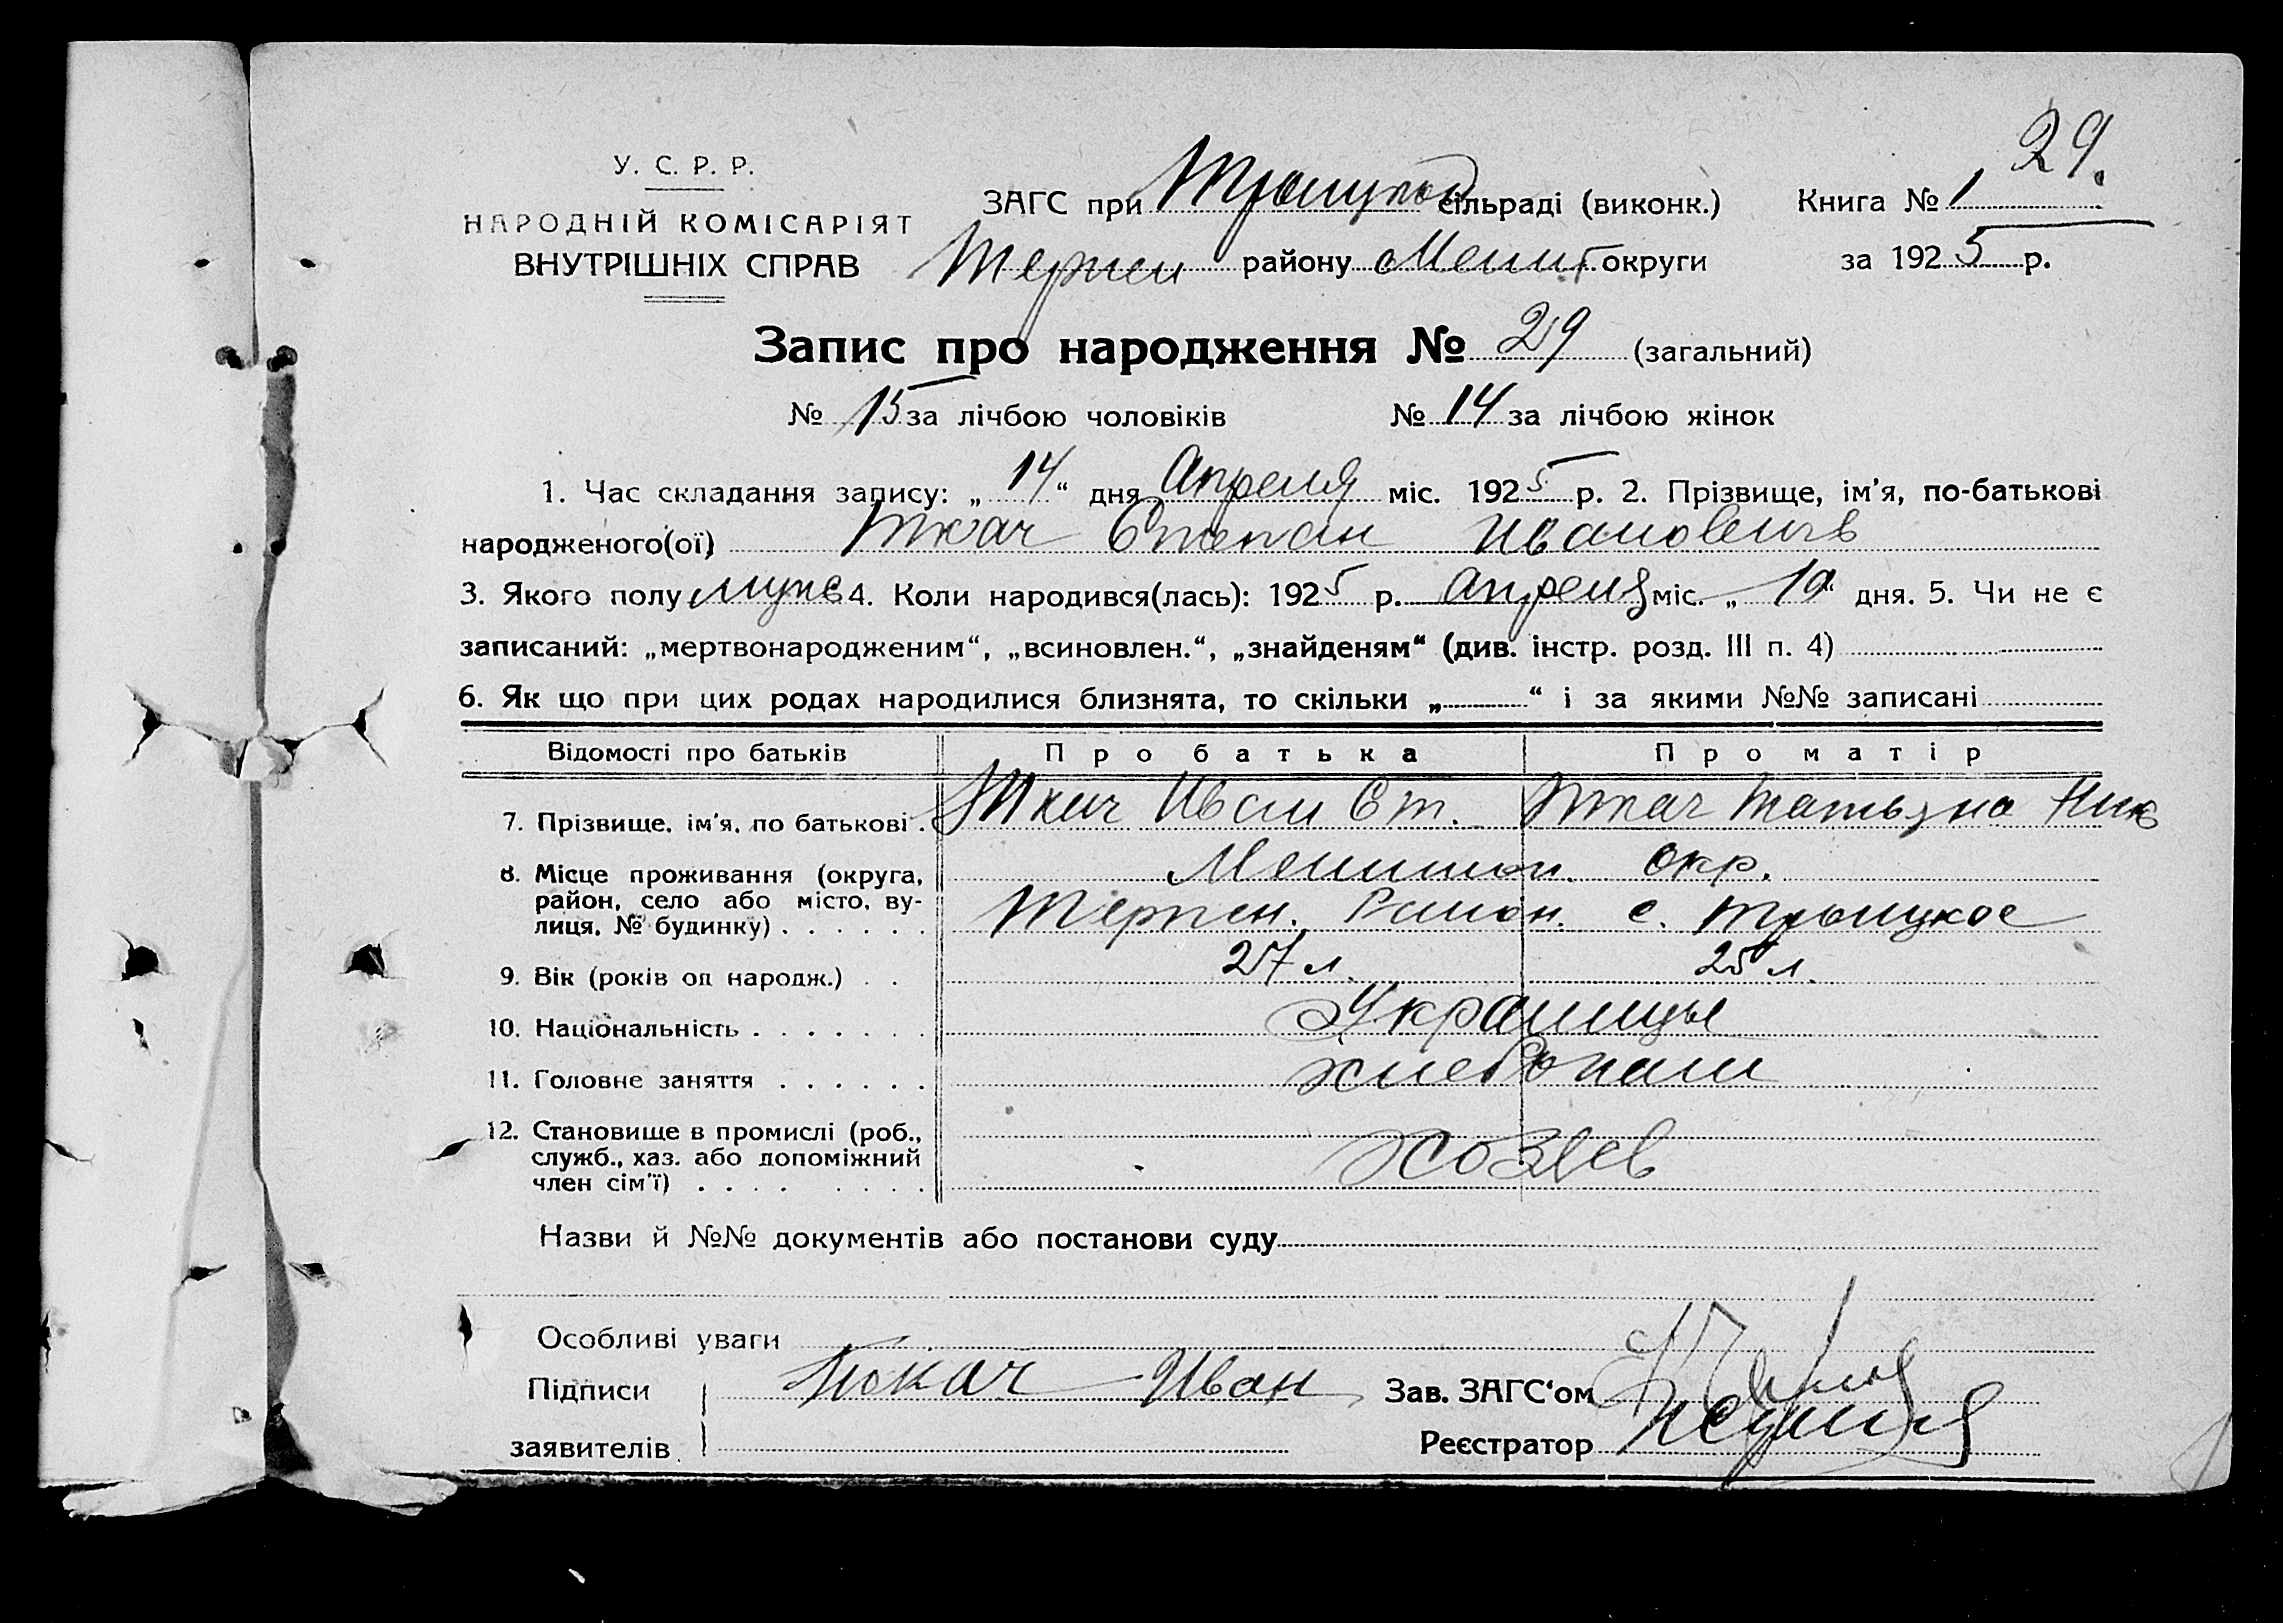 29.
У. С. Р. Р.
НАРОДНІЙ КОМІСАРІЯТ
ВНУТРІШНІХ СПРАВ
ЗАГС при Троицкой сільраді (виконк.) Книга № 1
Терпен району Мелит округи за 1925 р.
Запис про народження № 29 (загальний)
№ 15 за лічбою чоловіків № 14 за лічбою жінок
1. Час складання запису: „14“ дня Апреля міс. 1925 р. 2. Прізвище, ім'я, по-батькові
народженого(ої) Ткач Степан Ивановичь
3. Якого полу мужс 4. Коли народився(лась): 1925 р. апреля міс. „10“ дня. 5. Чи не є
записаний: „мертвонародженим“, „всиновлен.“, „знайденям“ (див. інстр. розд. III п. 4)
6. Як що при цих родах народилися близнята, то скільки „ “ і за якими №№ записані
Відомості про батьків Про батька Про матір
7. Прізвище, ім'я, по батькові . Ткач Иван Ст. Ткач Татьяна Ник
8. Місце проживання (округа, Мелитоп. окр.
район, село або місто, ву- Терпен. Район. с. Троицкое
лиця, № будинку) . . . . . .
9. Вік (років од народж.) . . 27 л. 25 л.
10. Національність . . . . . . . Украинцы
11. Головне заняття . . . . . . хлебопаш
12. Становище в промислі (роб.,
служб., хаз. або допоміжний Хозяев
член сім'ї) . . . . . . . .
Назви й №№ документів або постанови суду
Особливі уваги
Підписи Токач Иван Зав. ЗАГС'ом
заявителів Реєстратор